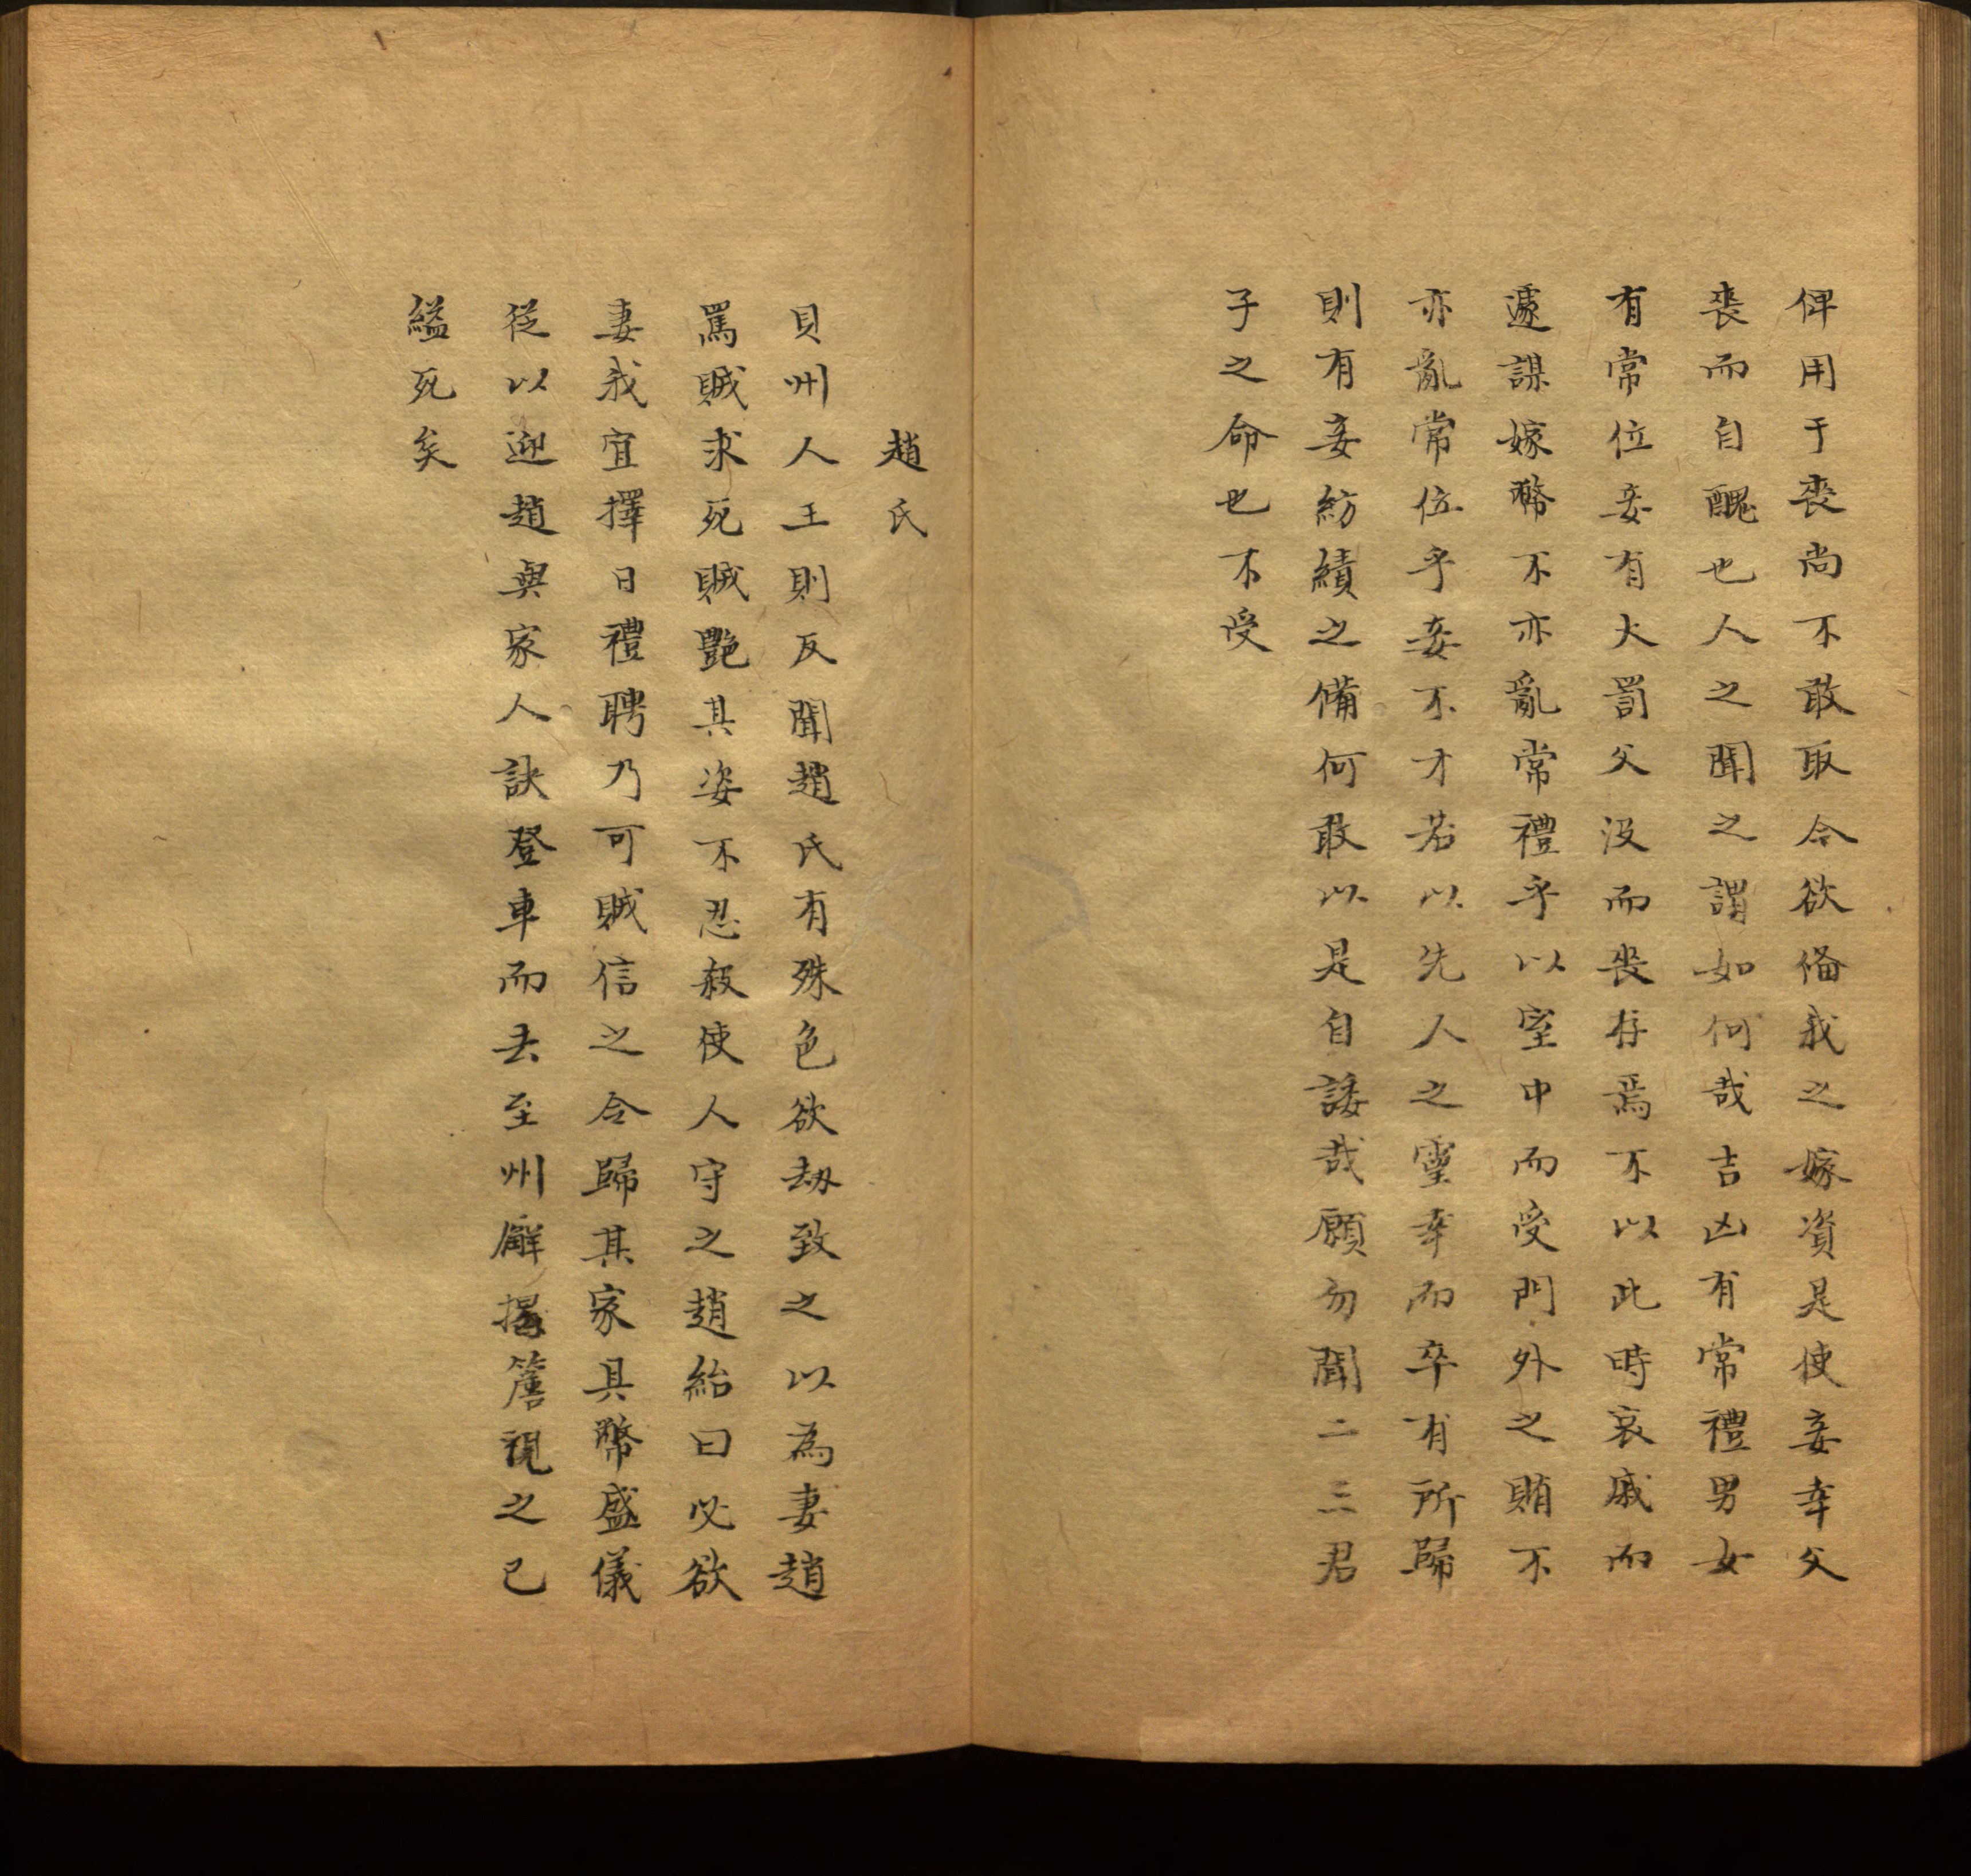 俾用于喪尚不敢取今欲俻我之嫁資是使妾幸父
喪而自醜也人之聞之謂如何哉吉凶有常禮男女
有常位妾有大罰父沒而喪存焉不以此時哀戚而
遽謀嫁幣不亦亂常禮乎以室中而受門外之賄不
亦亂常位乎妾不才若以先人之靈幸而卒有所歸
則有妾紡績之備何敢以是自諉哉願勿聞二三君
子之命也不受
趙氏
貝州人王則反聞趙氏有殊色欲劫致之以為妻趙
罵賊求死賊艷其姿不忍殺使人守之趙紿曰必欲
妻我宜擇日禮聘乃可賊信之令歸其家具幣盛儀
從以迎趙與家人訣登車而去至州廨揭簷視之已
縊死矣